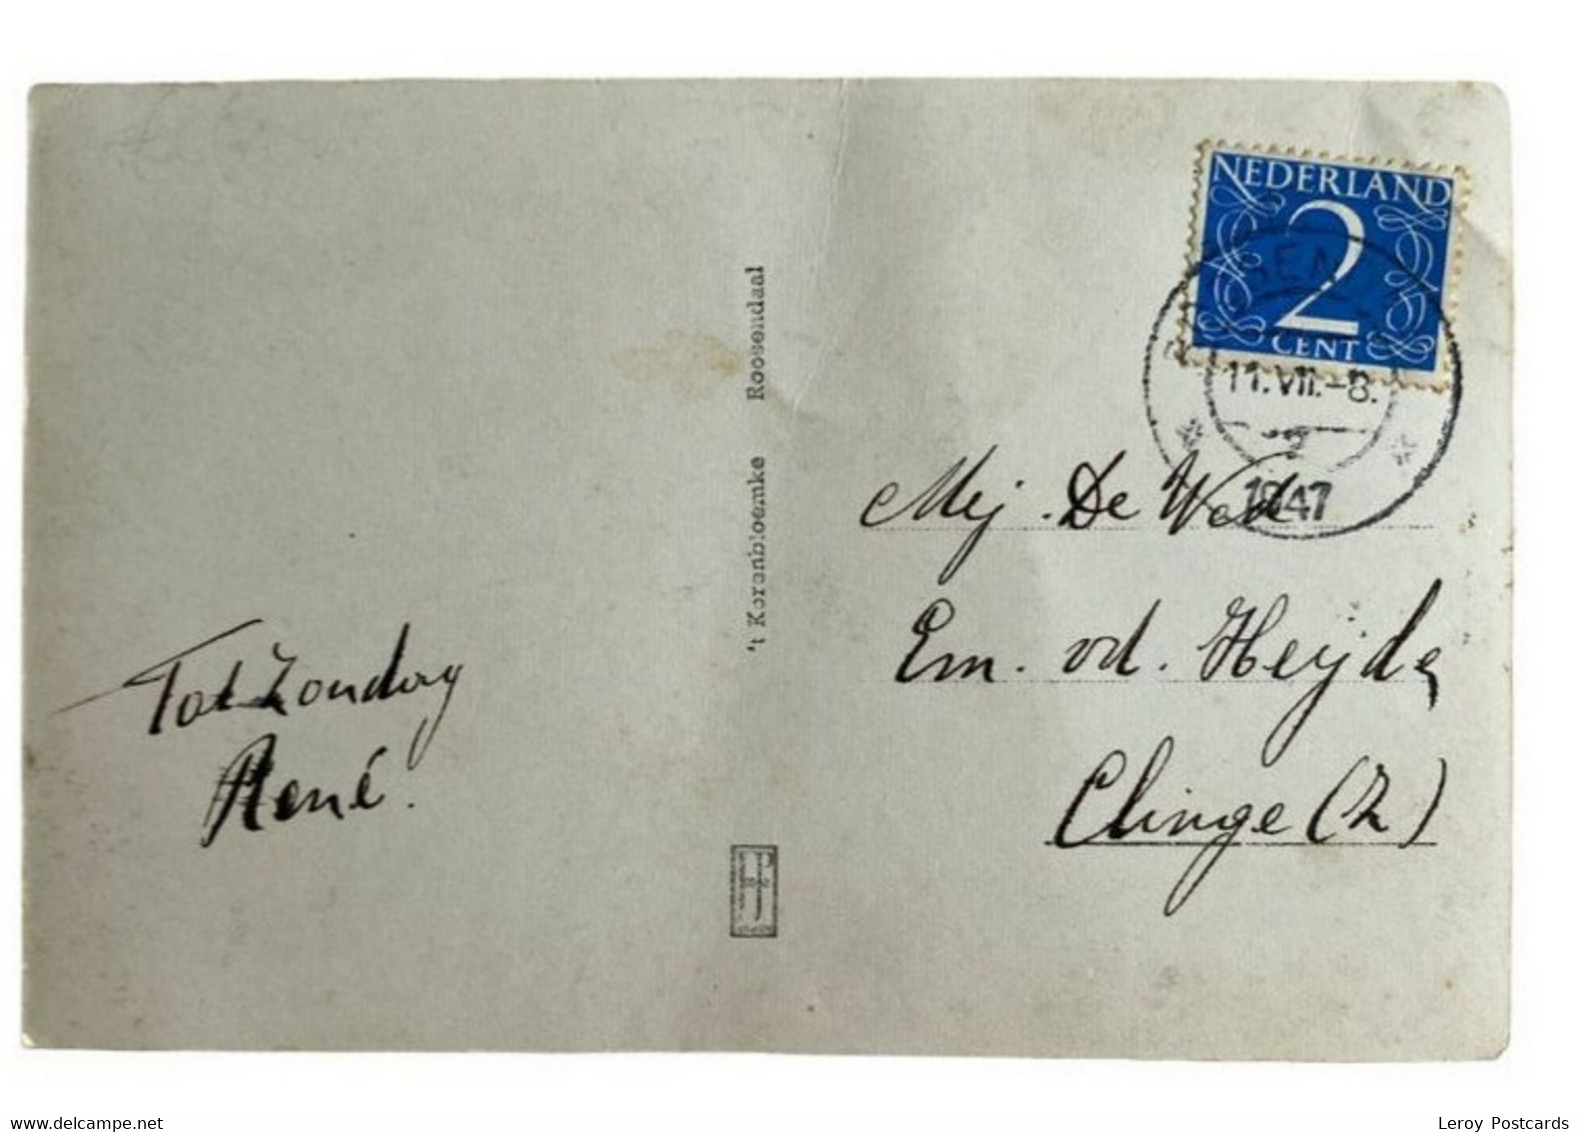 NEDERLAND
2
CENT
11.VII.-8.
1947
Tot Zondag
René.
't Korenbloemke Roosendaal
Mej. De Wed
Em. vd. Heijde
Clinge (Z)
www.delcampe.net
Leroy Postcards